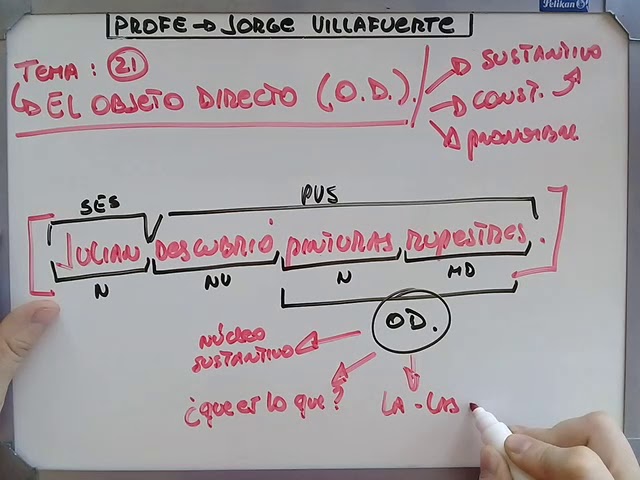 Pelikan
PROFE → JORGE VILLAFUERTE
TEMA: 21
↳ EL OBJETO DIRECTO (O.D.).
→ SUSTANTIVO
→ CONST.
→ PRONOMBRE
SES
PVS
[JULIAN DESCUBRIÓ PINTURAS RUPESTRES.]
N NV N MD
OD.
NÚCLEO
SUSTANTIVO
¿que es lo que?
LA - LAS